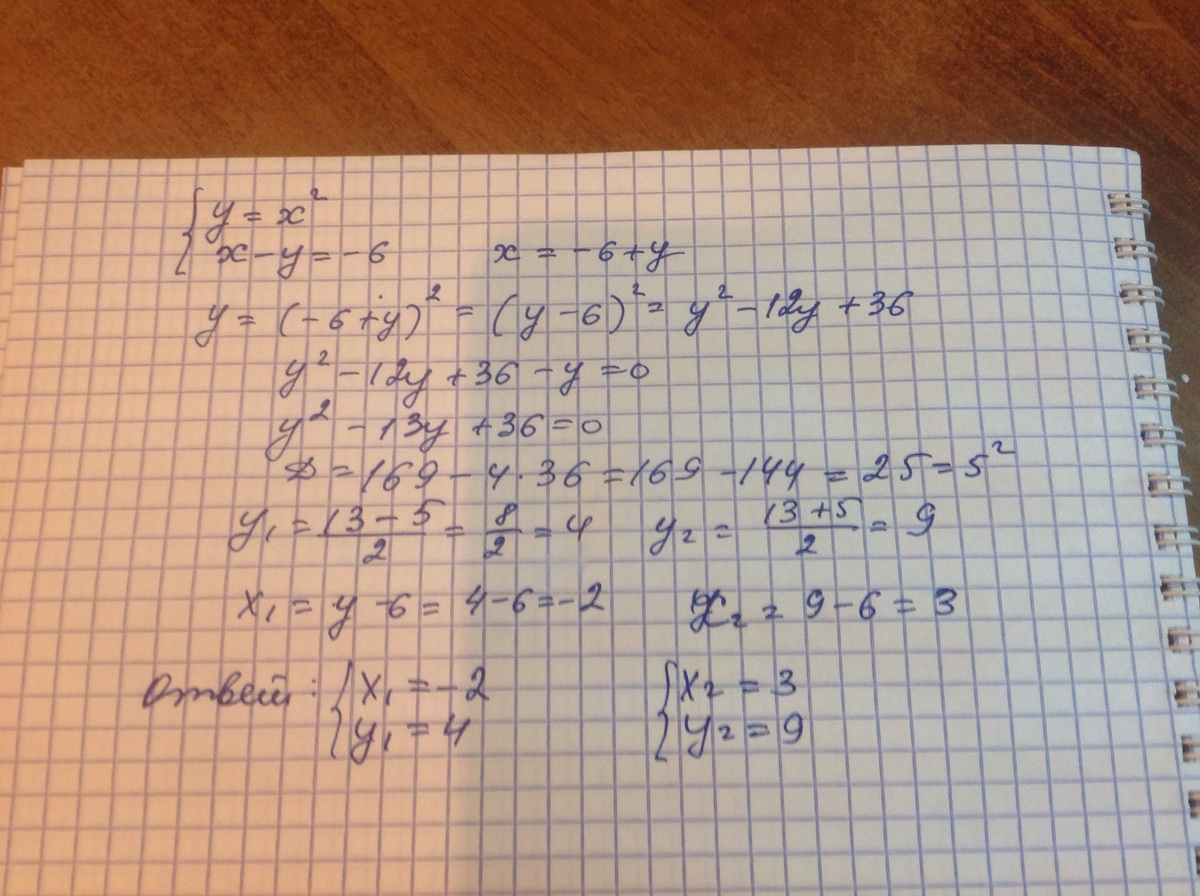 { y = x²
x - y = -6    x = -6 + y
y = (-6 + y)² = (y - 6)² = y² - 12y + 36
y² - 12y + 36 - y = 0
y² - 13y + 36 = 0
D = 169 - 4 · 36 = 169 - 144 = 25 = 5²
y₁ = (13 - 5)/2 = 8/2 = 4    y₂ = (13 + 5)/2 = 9
x₁ = y - 6 = 4 - 6 = -2    x₂ = 9 - 6 = 3
Ответ: { x₁ = -2    { x₂ = 3
y₁ = 4    y₂ = 9